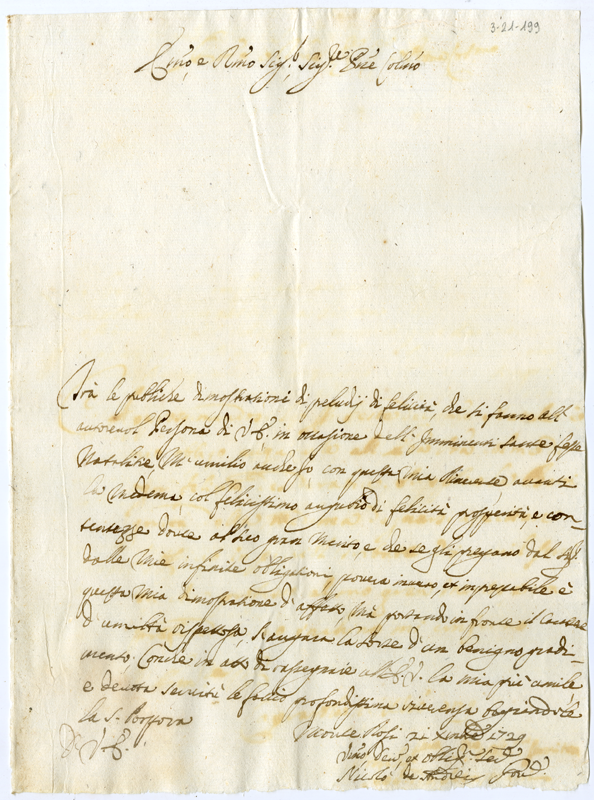 3-21-199
Emo, e Rmo Sigr. Sigre. Pne Colmo
Trà le publiche dimostrationi di preludij di felicità, che si fanno all'
autorevol Persona di V.E. in occasione dell'Imminenti Sante feste
Natalitie M'umilio anch'io, con questa mia Riverente avanti
la medema, col felicissimo augurio di felicità prosperità, e con-
tentezze douce al suo gran Merito e che se gli pregano dal
dalle mie infinite obligationi povera invero, et impepabile è
questa mia dimostratione d'affetto, mà portando in fronte il
d'umiltà rispettosa, la sorte d'un benigno gradi-
mento. Conche in atto di rassegnare all'E.V. la mia più umile
e devota servitù le faccio profondissima riverenza baciandole
la S. Porpora
D. V.E. Monte Rosi 21 Xmbre 1729
Umo Devo. et obblgo. Serv
Nicolò de